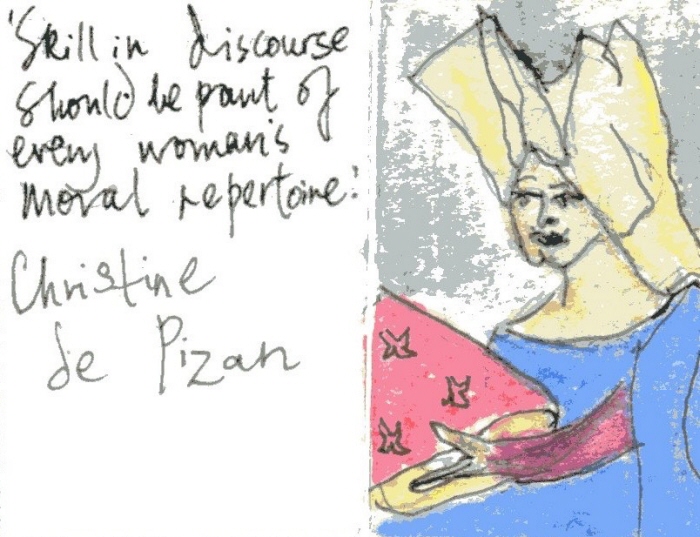 'Skill in discourse
should be part of
every woman's
moral repertoire.'
Christine
de Pizan